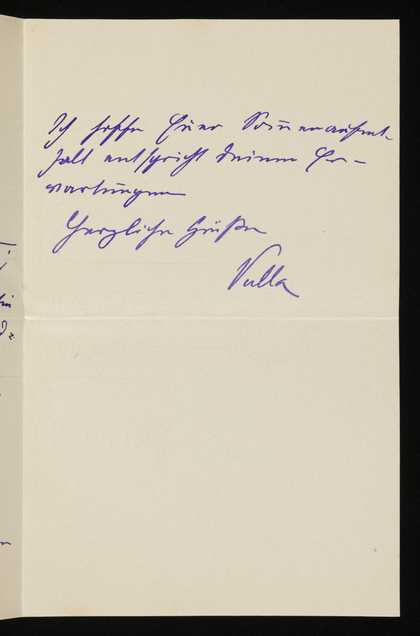 Ich hoffe Euer Sommeraufent-
halt entspricht deinen Er-
wartungen
Herzliche Grüße
Vulla